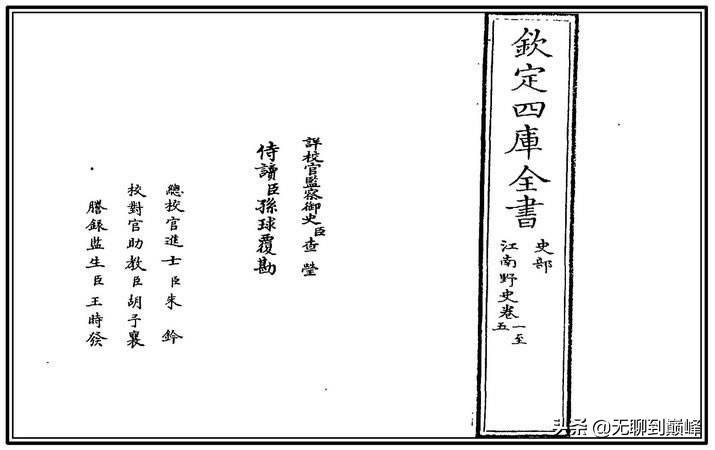 欽定四庫全書
史部
江南野史卷一至五
詳校官監察御史臣查瑩
侍讀臣孫球覆勘
總校官進士臣朱鈐
校對官助教臣胡予襄
謄錄監生臣王時發
头条 @无聊到巅峰